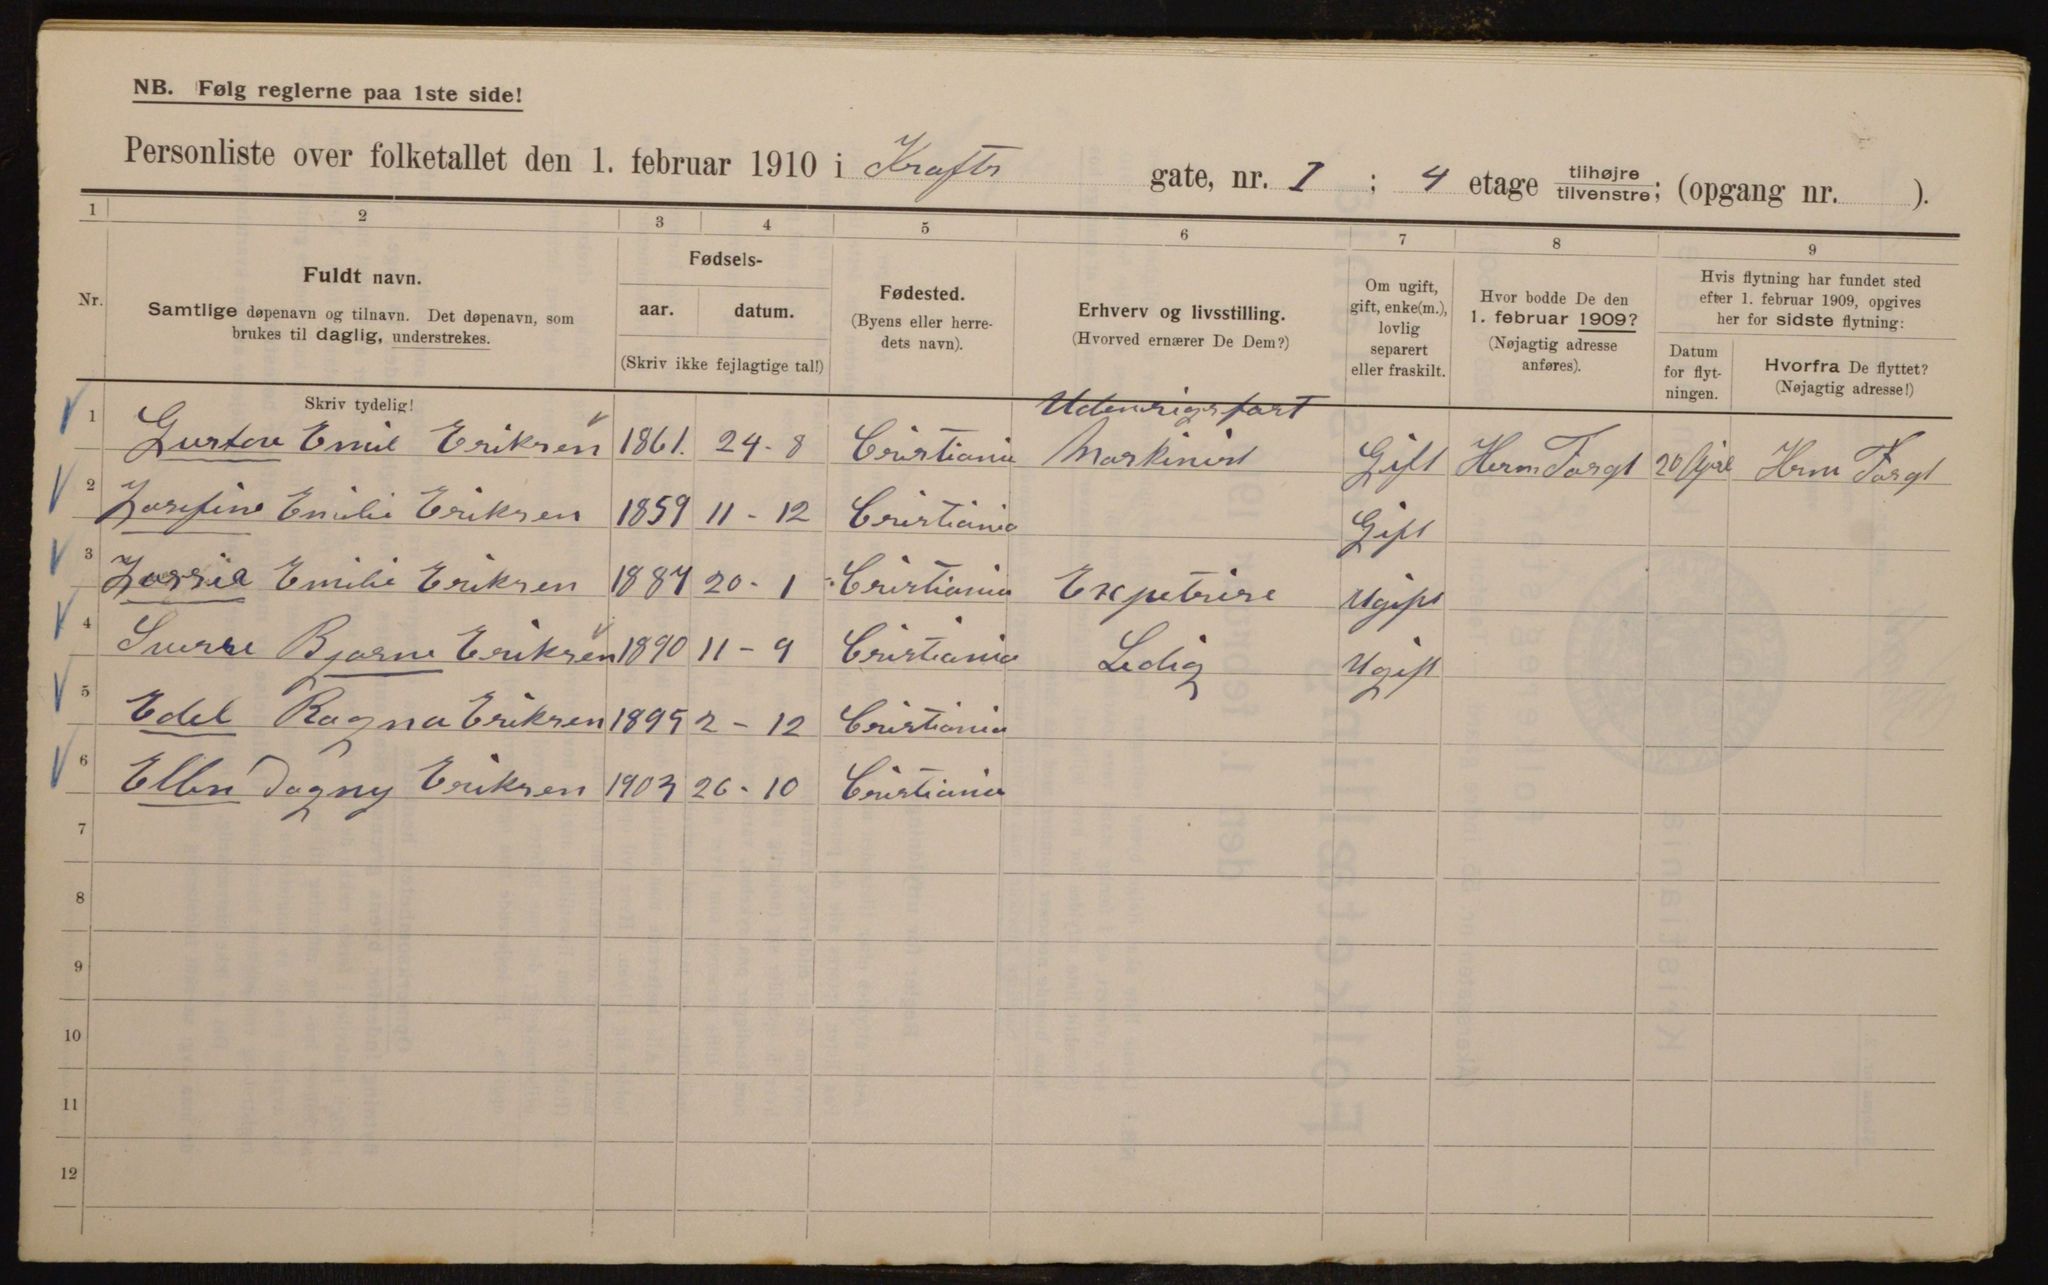 NB. Følg reglerne paa 1ste side!
Personliste over folketallet den 1. februar 1910 i Krafts gate, nr. 1 ; 4 etage tilhøjre/tilvenstre; (opgang nr. ).
1 2 3 4 5 6 7 8 9
Nr.
Fuldt navn.
Samtlige døpenavn og tilnavn. Det døpenavn, som
brukes til daglig, understrekes.
Skriv tydelig!
Fødsels-
aar. datum.
(Skriv ikke fejlagtige tal!)
Fødested.
(Byens eller herre-
dets navn).
Erhverv og livsstilling.
(Hvorved ernærer De Dem?)
Om ugift,
gift, enke(m.),
lovlig
separert
eller fraskilt.
Hvor bodde De den
1. februar 1909?
(Nøjagtig adresse
anføres).
Hvis flytning har fundet sted
efter 1. februar 1909, opgives
her for sidste flytning:
Datum
for flyt-
ningen.
Hvorfra De flyttet?
(Nøjagtig adresse!)
Udenrigsfart
1 Gustav Emil Eriksen 1861. 24-8 Cristiania Maskinist Gift Herm Torgt 20 April Hrm Torgt
2 Josefine Emilie Eriksen 1859 11-12 Cristiania Gift
3 Emilie Eriksen 1887 20-1 Cristiania Expetrise Ugift
4 Sverre Bjarne Eriksen 1890 11-9 Cristiania Ledig Ugift
5 Edel Ragna Eriksen 1895 2-12 Cristiania
6 Ellen Dagny Eriksen 1903 26-10 Cristiania
7
8
9
10
11
12